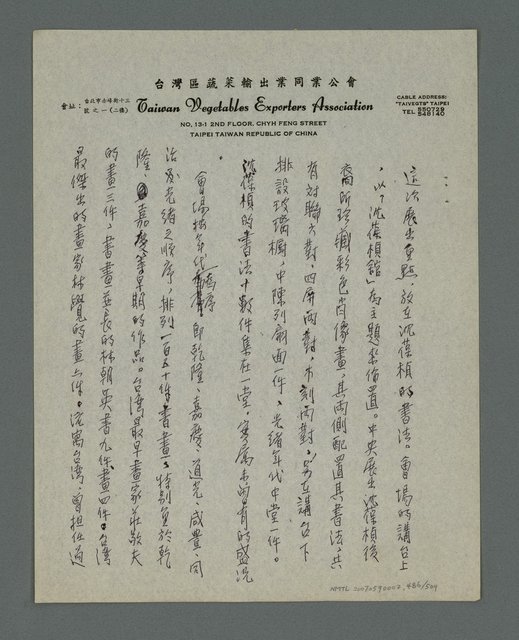 台灣區蔬菜輸出業同業公會
會址：台北市赤峰街十三號之一（二樓）
Taiwan Vegetables Exporters Association
CABLE ADDRESS:
"TAIVEGTS" TAIPEI
TEL 550729
548140
NO, 13-1 2ND FLOOR, CHYH FENG STREET
TAIPEI TAIWAN REPUBLIC OF CHINA
這次展出重點，放在沈葆楨的書法。會場的講台上
，以「沈葆楨館」為主題來佈置。中央展出沈葆楨後
裔所珍藏彩色肖像畫，其兩側配置其書法，共
有對聯六對，四屏兩對，木刻兩對，另在講台下
排設玻璃櫥，中陳列扇面一件、光緒年代中堂一件。
沈葆楨的書法十數件集在一堂，實屬未曾有的盛況
會場按年代為序，即乾隆、嘉慶、道光、咸豐、同
治及光緒之順序，排列一百五十件書畫，特別負於乾
隆、嘉慶等早期的作品。台灣最早畫家莊敬夫
的畫三件，書畫並長的林朝英書九件，畫四件。台灣
最傑出的畫家林覺的畫六件。流寓台灣，曾担任過
NMTL 20070590007, 486/504